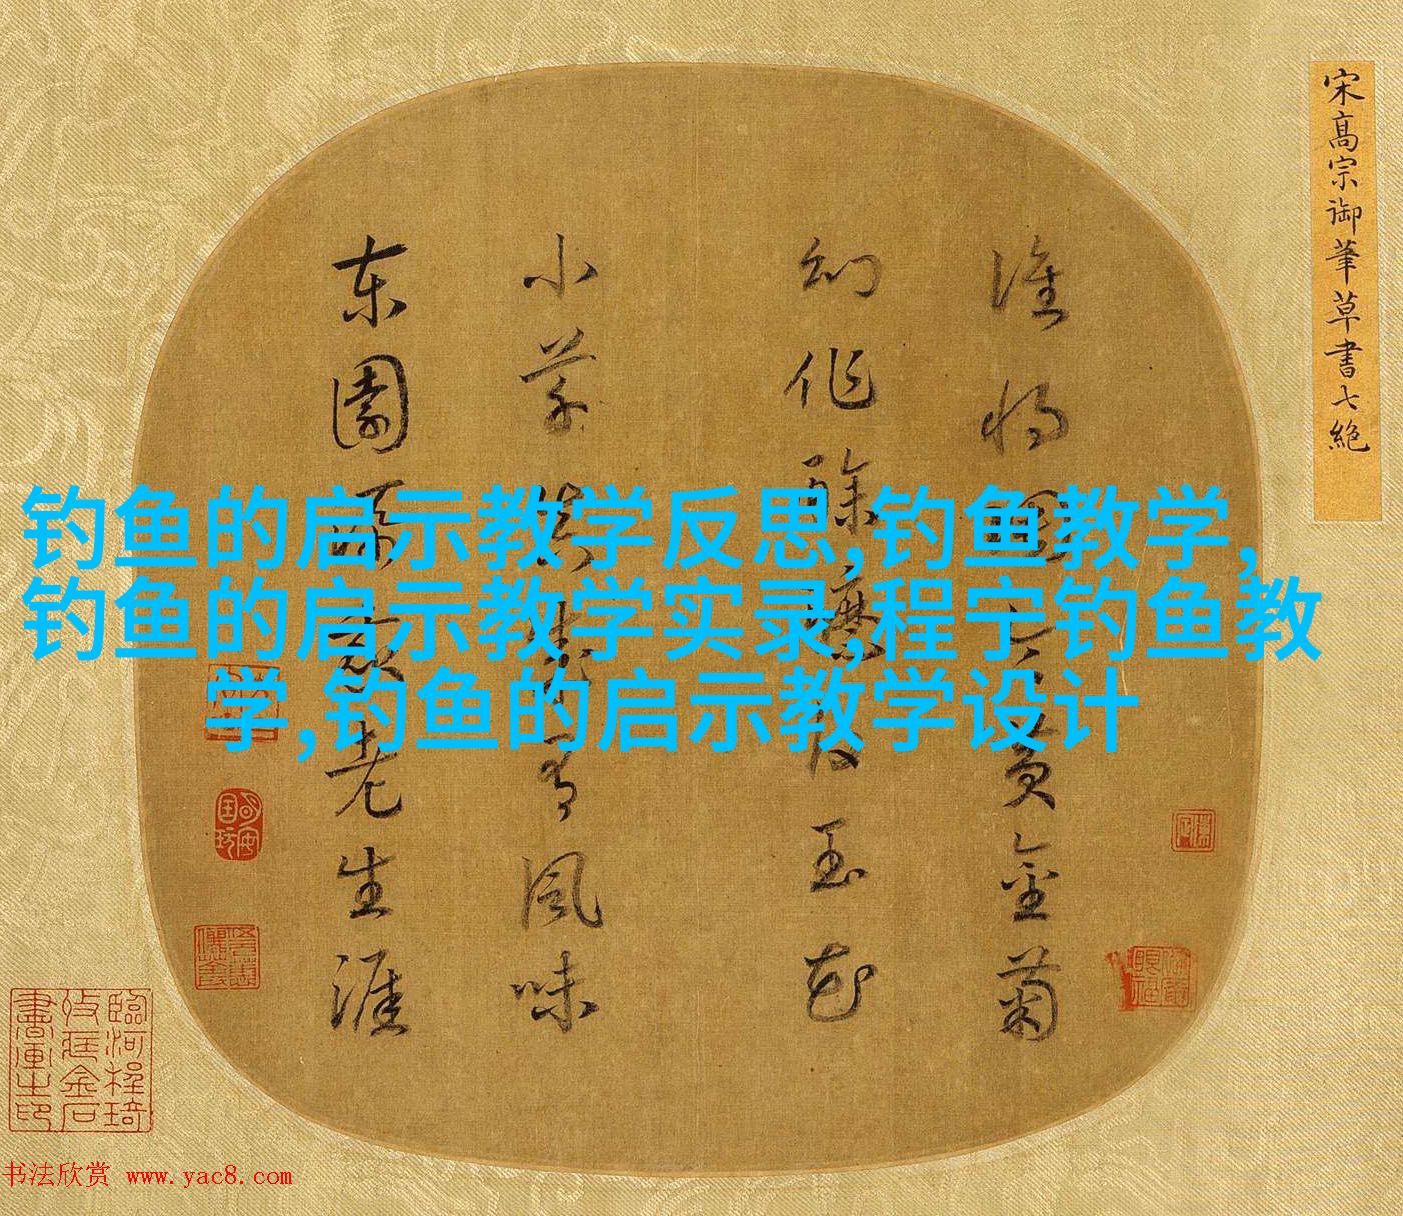 宋高宗御筆草書七絕
誰將黄金菊
幻作玉花
小草有風味
东園老生涯
钓鱼的启示教学反思,钓鱼教学,
钓鱼的启示教学实录,程宁钓鱼教
学,钓鱼的启示教学设计
书法欣赏 www.yac8.com